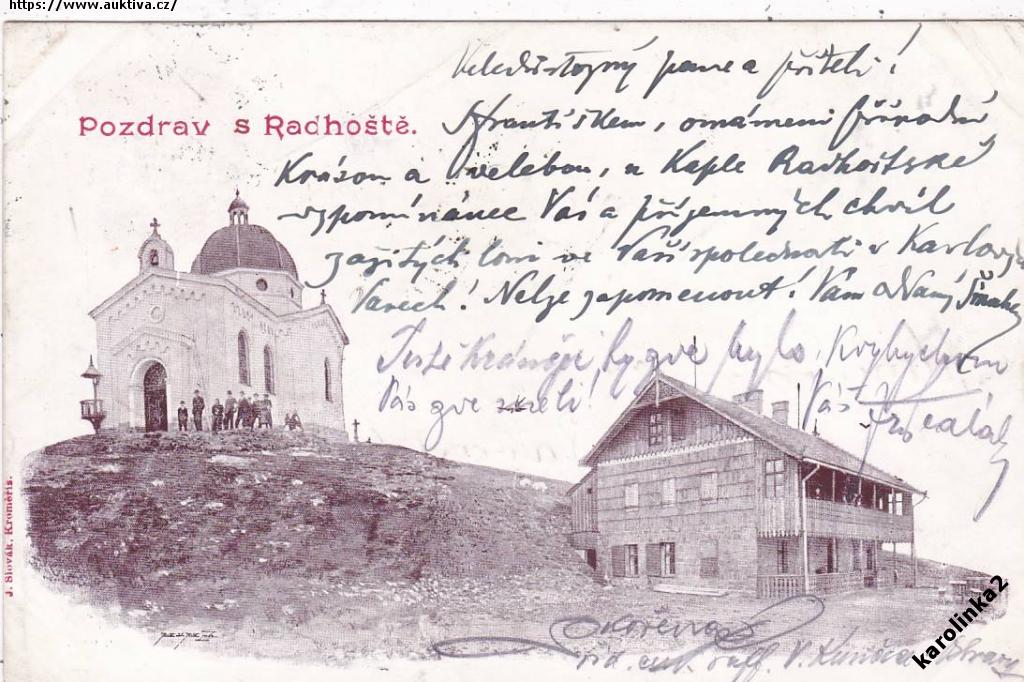 https://www.auktiva.cz/
Pozdrav s Radhoště.
Veledůstojný pane a příteli!
Františkem, omámeni přírodní
krásou a velebou, u Kaple Radhošťské
vzpomínáme Vás a příjemných chvil
zažitých loni ve Vaší společnosti v Karlových
Varech! Nelze zapomenout! Vám oddaný
Ještě krásněji by zde bylo, kdybychom
Vás zde měli! Váš
J. Slovák, Kroměříž.
karolinka2